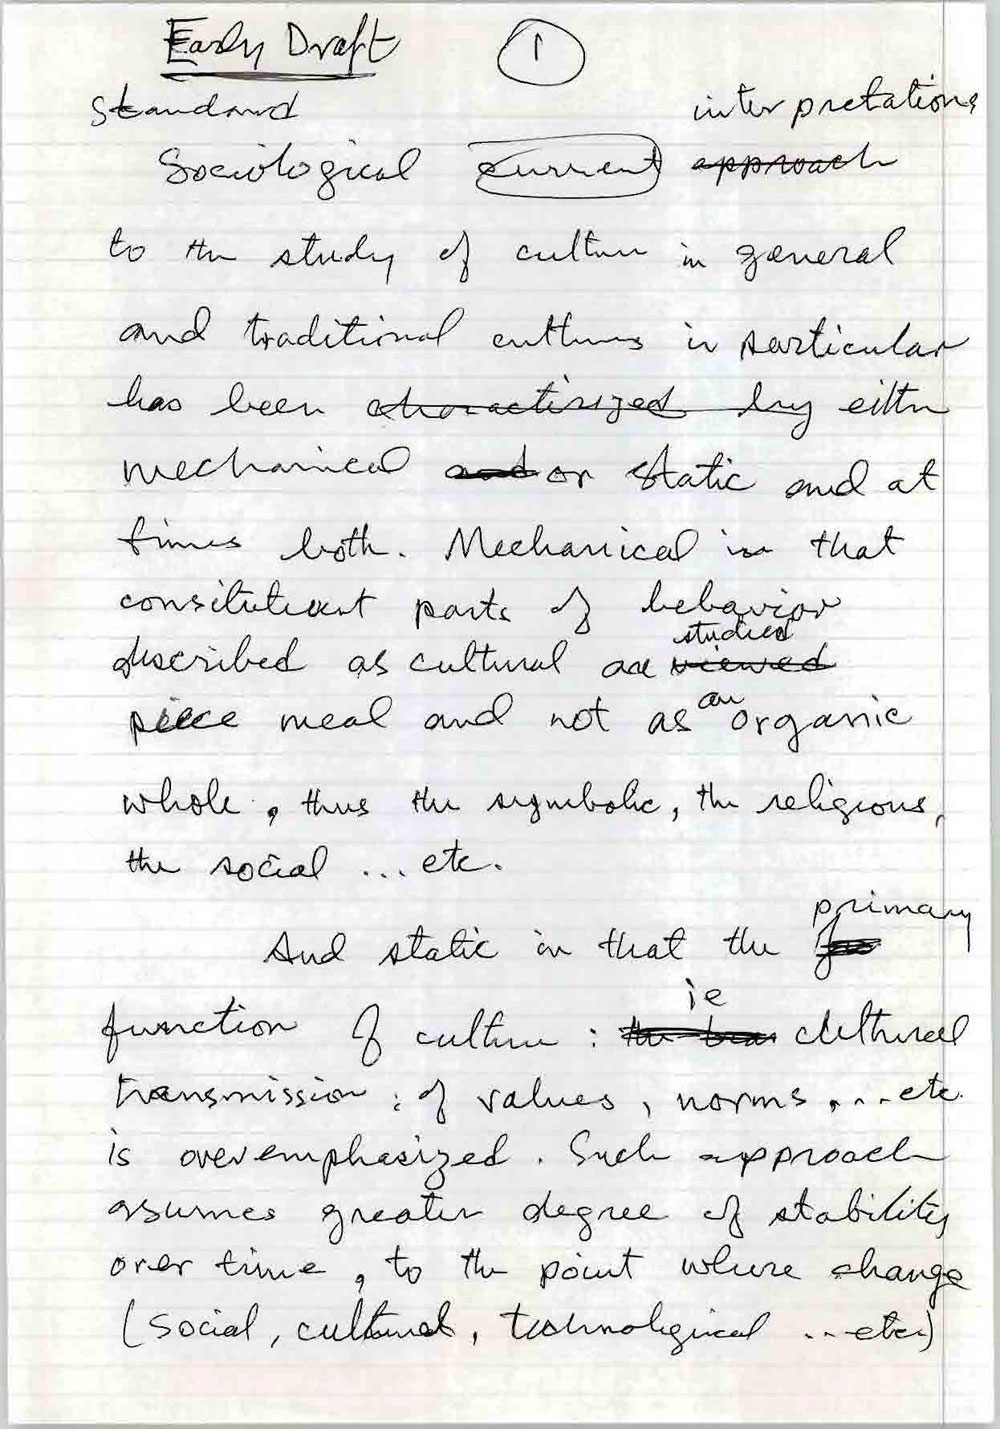 Early Draft 1
standard interpretations
Sociological current approach
to the study of culture in general
and traditional cultures in particular
has been characterized by either
mechanical and or static and at
times both. Mechanical in that
consituteuant parts of behavior
studied
described as cultural are viewed
an
piece meal and not as organic
whole, thus the symbolic, the religious,
the social ... etc.
primary
And static in that the
ie
function of culture : the cultural
transmission : of values, norms, ... etc.
is overemphasized. Such approach
assumes greater degree of stability
over time, to the point where change
(social, cultural, technological ... etc.)